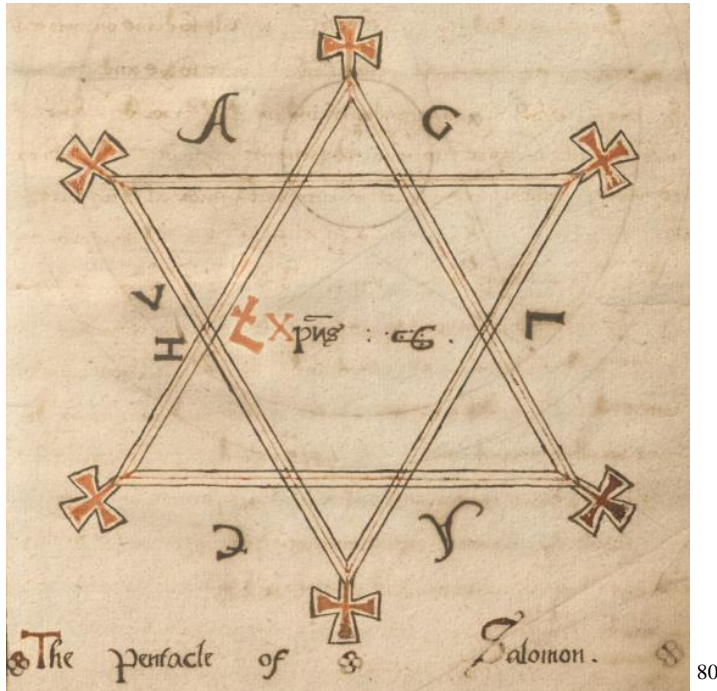 A G
V
H L
Xpūs :
A
The Pentacle of Salomon.
80